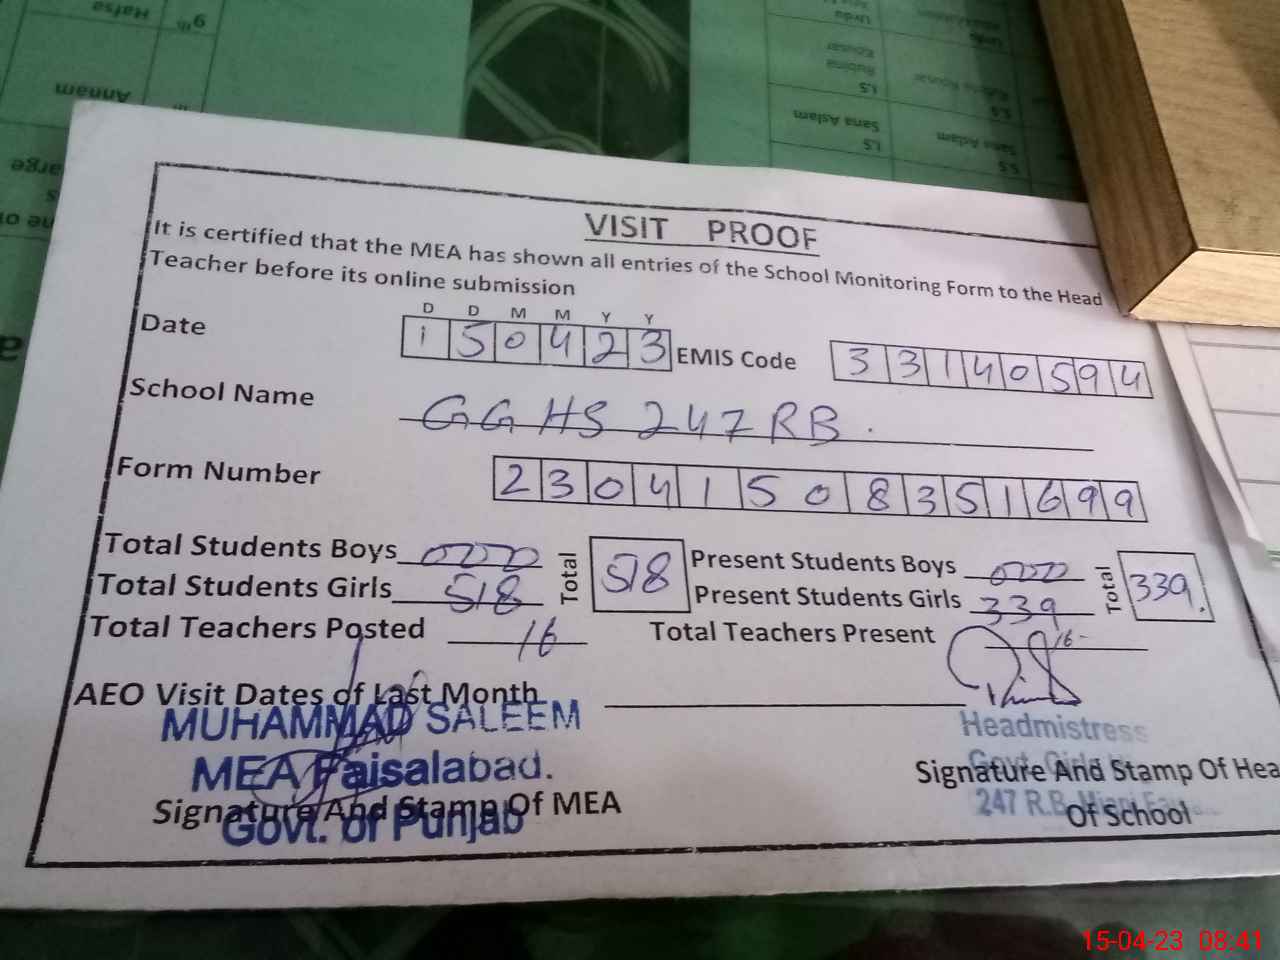 9th Hafsa
Annam
Urdu
Rubina Kousar
S.S
Sana Aslam
S.S
VISIT PROOF
It is certified that the MEA has shown all entries of the School Monitoring Form to the Head
Teacher before its online submission
D D M M Y Y
Date 150423 EMIS Code 33140594
School Name GGHS 247RB.
Form Number 23041508351699
Total Students Boys 000 Total 518 Present Students Boys 000 Total 339.
Total Students Girls 518 Present Students Girls 339
Total Teachers Posted 16 Total Teachers Present 16
AEO Visit Dates of Last Month
MUHAMMAD SALEEM
MEA Faisalabad.
Govt. of Punjab
Signature And Stamp Of MEA
Headmistress
Govt. Girls
247 R.B.
Signature And Stamp Of Hea
Of School
15-04-23 08:41